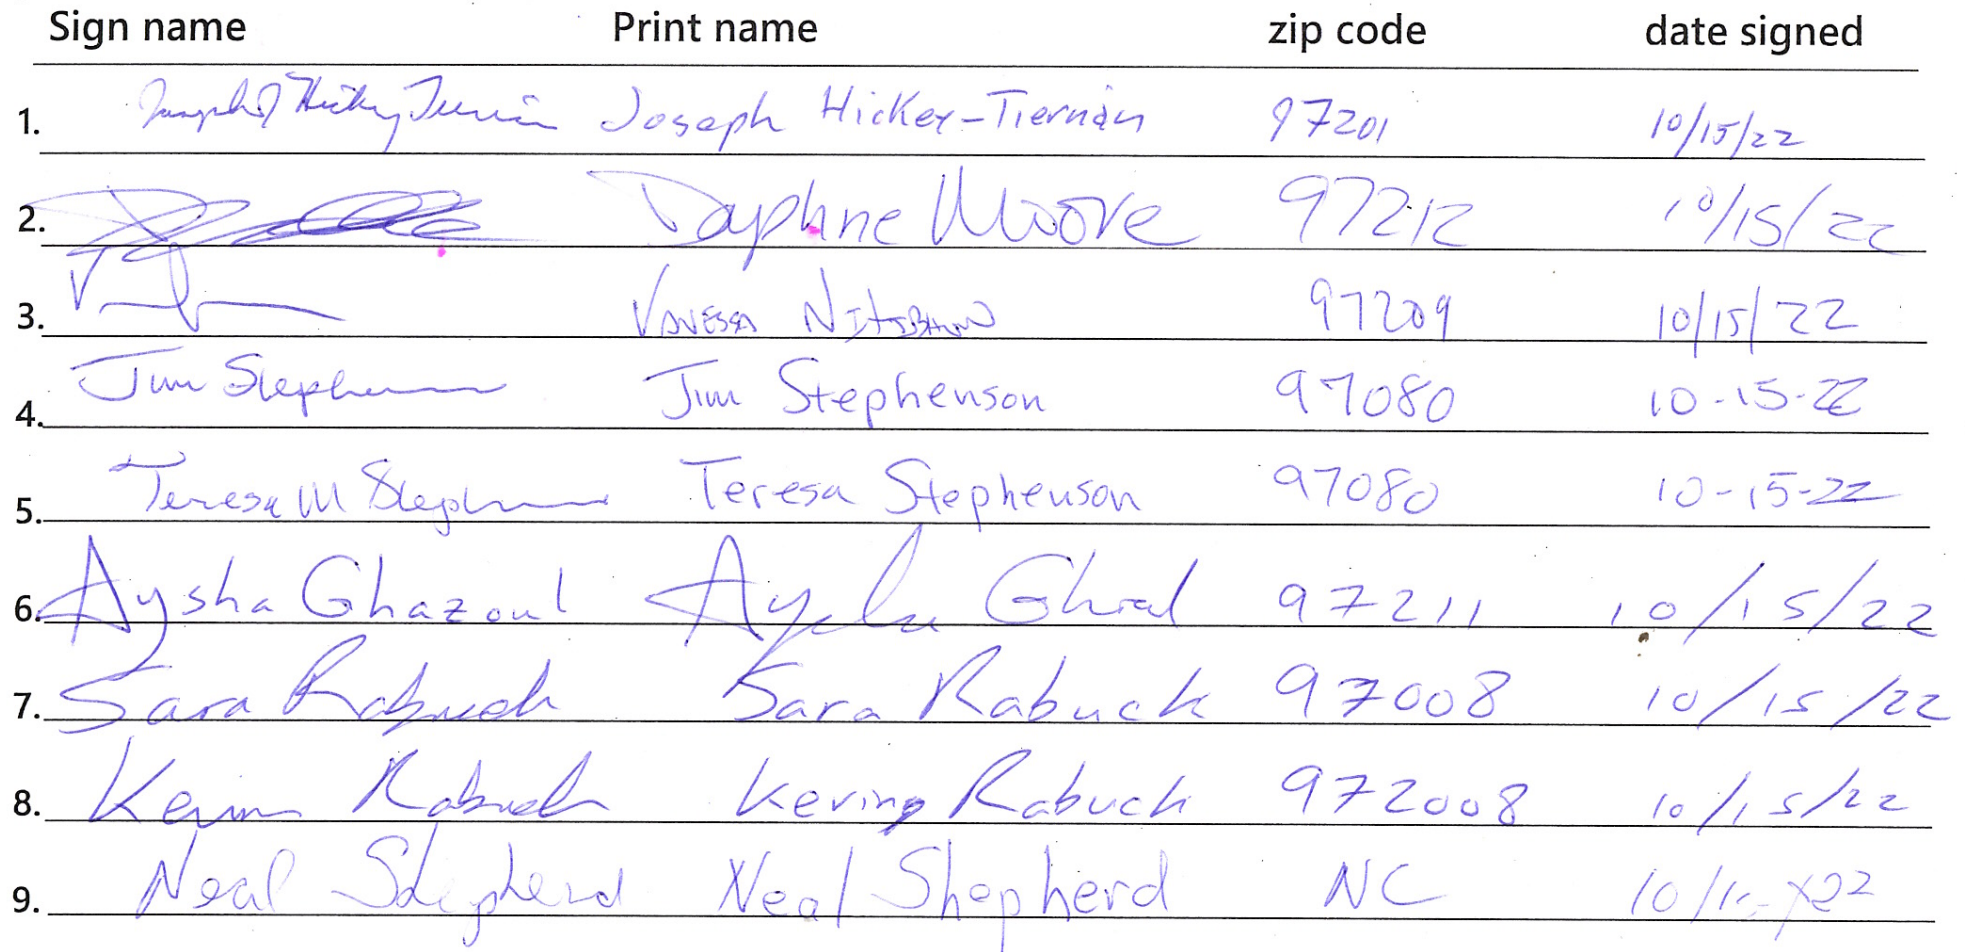 Sign name Print name zip code date signed
1. Joseph Hickey-Tiernan 97201 10/15/22
2. Daphne Moore 97212 10/15/22
3. Vanessa 97209 10/15/22
4. Jim Stephenson Jim Stephenson 97080 10-15-22
5. Teresa M Teresa Stephenson 97080 10-15-22
6. Aysha Ghazoul 97211 10/15/22
7. Sara Rabuck Sara Rabuck 97008 10/15/22
8. Rabuck Kevin Rabuck 972008 10/15/22
9. Neal Shepherd Neal Shepherd NC